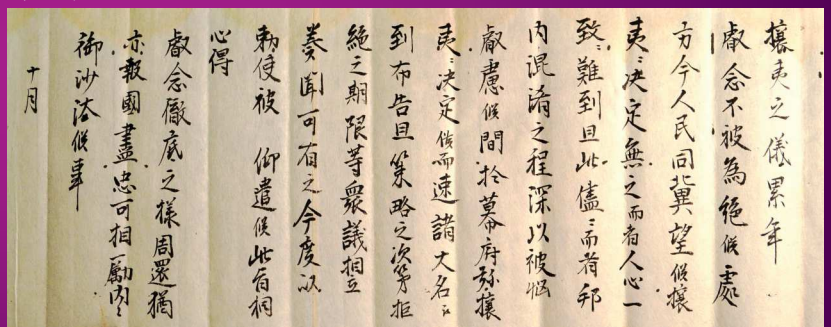 攘夷之儀累年
叡念不被為絶候處
方今人民同冀望候攘
夷ニ决定無之而者人心一
致ニ難到且此儘ニ而者邦
内混淆之程深以被惱
叡慮候間於幕府弥攘
夷ニ决定候而速諸大名江
到布告且策略之次第拒
絶之期限等衆議相立
奏聞可有之今度以
勅使被 仰遣候此旨相
心得
叡念徹底之様周還猶
亦報國盡忠可相勵内々
御沙汰候事
十月